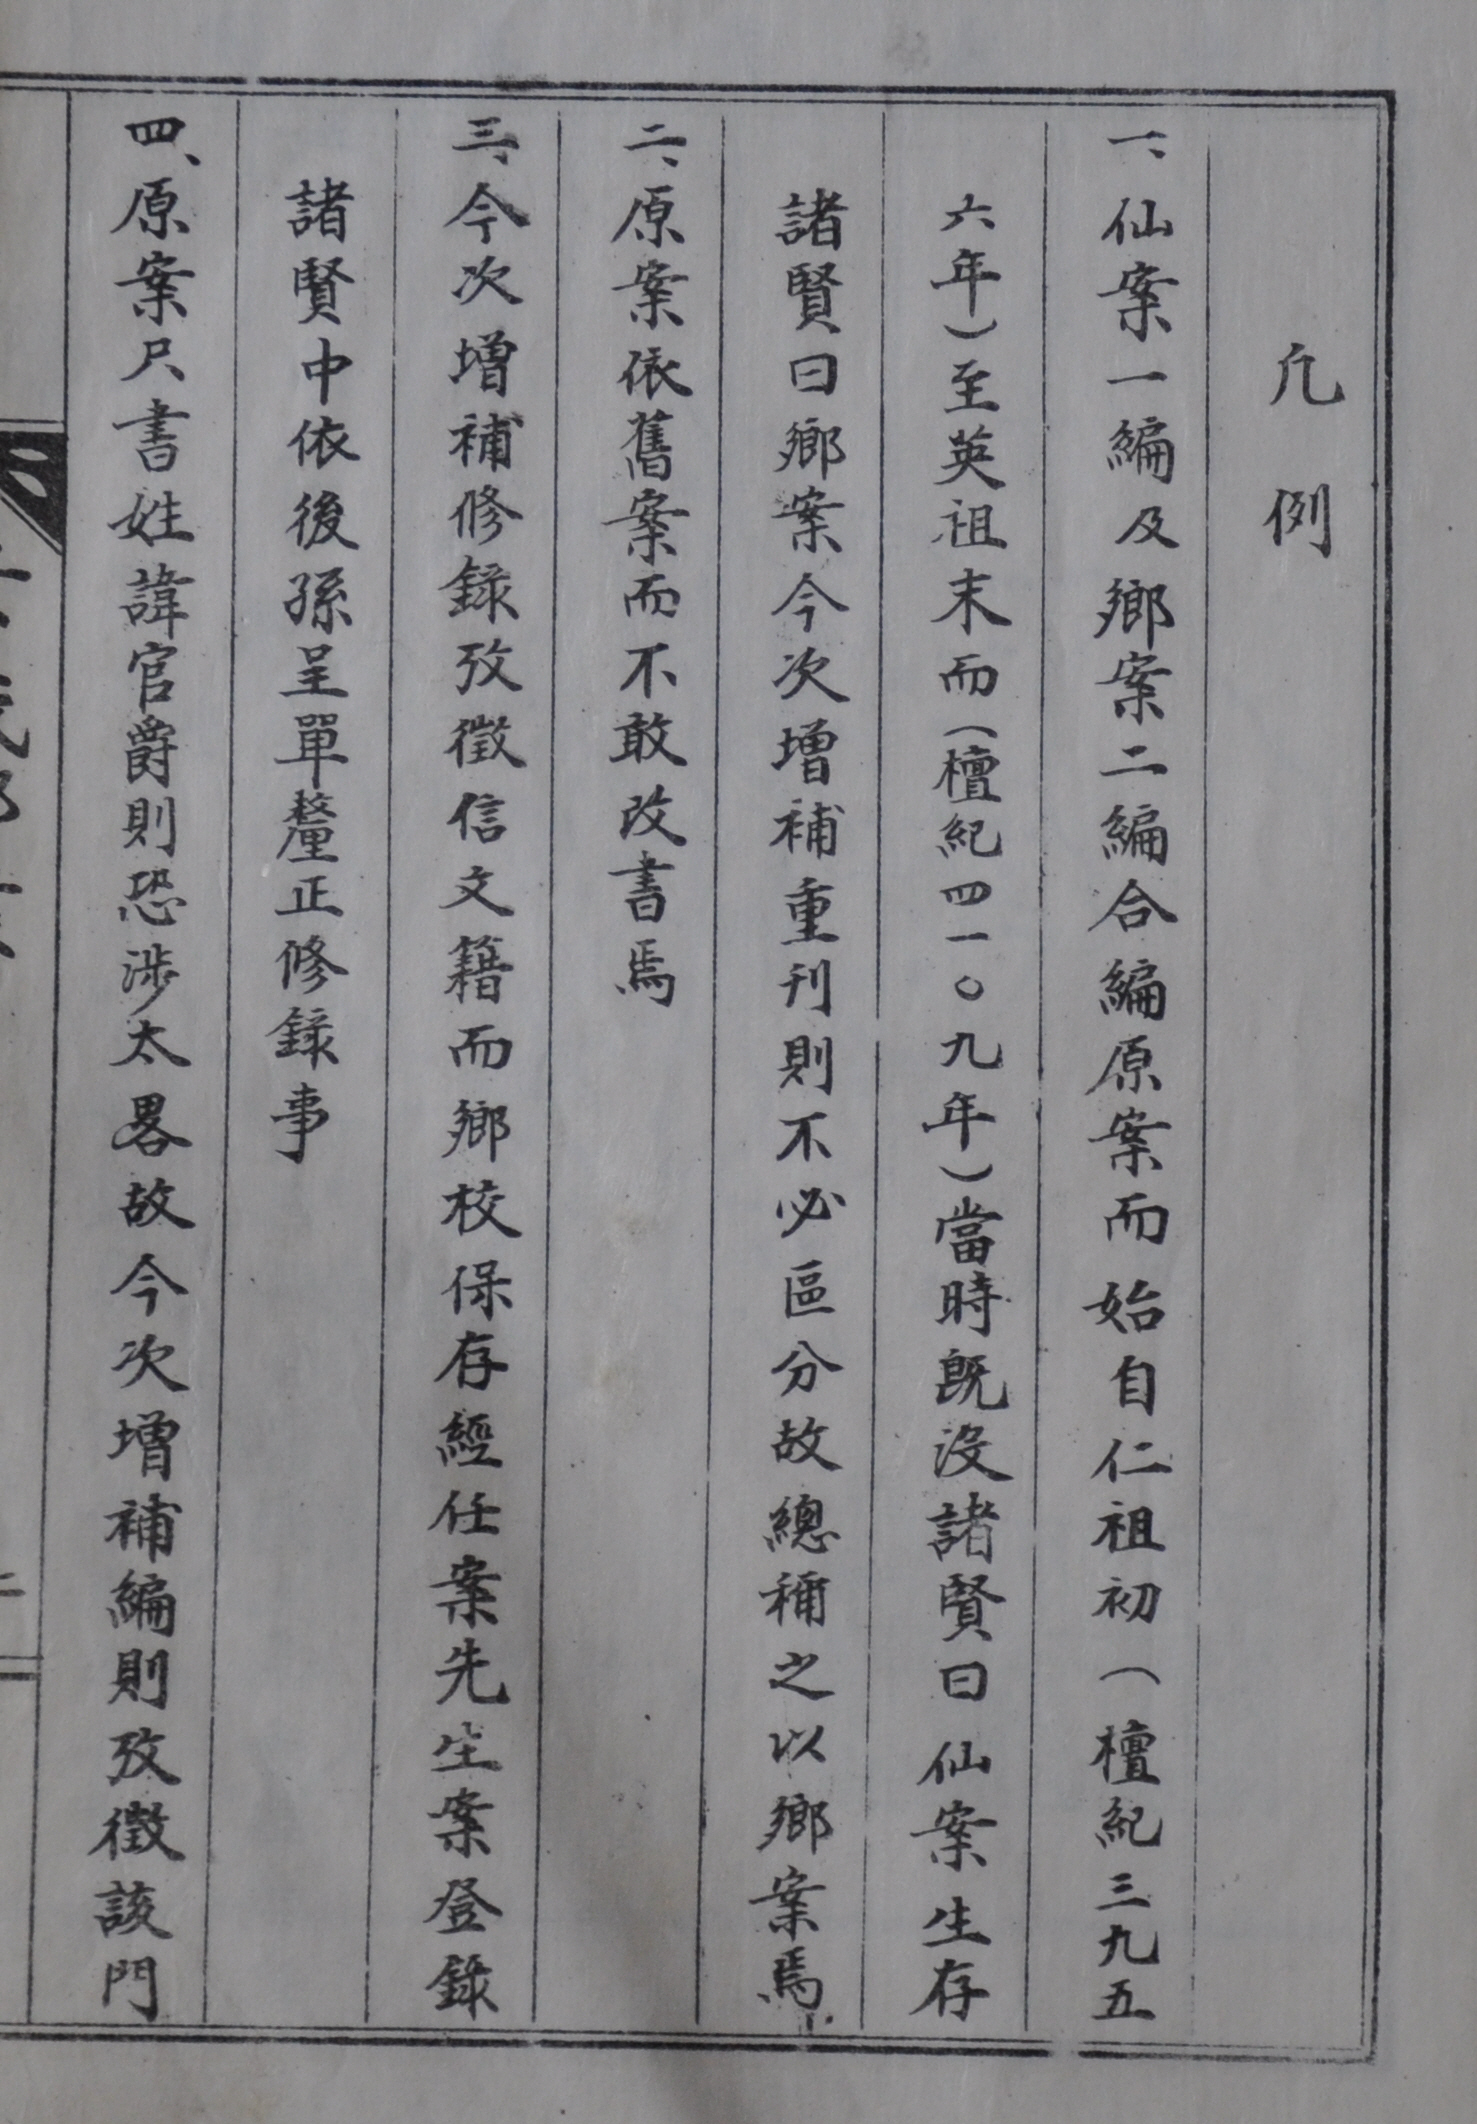 凡例
一、仙案一編及鄉案二編合編原案而始自仁祖初(檀紀三九五
六年)至英祖末而(檀紀四一〇九年)當時既沒諸賢曰仙案生存
諸賢曰鄉案今次增補重刊則不必區分故總稱之以鄉案焉
二、原案依舊案而不敢改書焉
三、今次增補修錄攷徵信文籍而鄉校保存經任案先生案登錄
諸賢中依後孫呈單釐正修錄事
四、原案只書姓諱官爵則恐涉太畧故今次增補編則攷徵該門